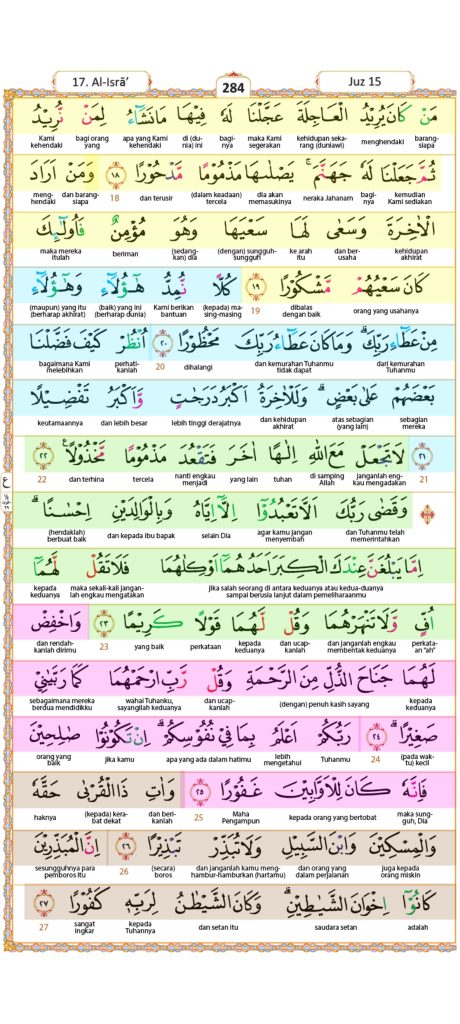 17. Al-Isrā’
284
Juz 15
مَنْ كَانَ يُرِيْدُ الْعَاجِلَةَ عَجَّلْنَا لَهٗ فِيْهَا مَا نَشَاۤءُ لِمَنْ نُّرِيْدُ
barang-siapa menghendaki kehidupan seka-rang (duniawi) maka Kami segerakan bagi-nya di (du-nia) ini apa yang Kami kehendaki bagi orang yang Kami kehendaki
ثُمَّ جَعَلْنَا لَهٗ جَهَنَّمَۚ يَصْلٰىهَا مَذْمُوْمًا مَّدْحُوْرًا ١٨ وَمَنْ اَرَادَ
kemudian Kami sediakan bagi-nya neraka Jahanam dia akan memasukinya (dalam keadaan) tercela dan terusir 18 dan barang-siapa meng-hendaki
الْاٰخِرَةَ وَسَعٰى لَهَا سَعْيَهَا وَهُوَ مُؤْمِنٌ فَاُولٰۤىِٕكَ
kehidupan akhirat dan ber-usaha ke arah itu (dengan) sungguh-sungguh (sedang-kan) dia beriman maka mereka itulah
كَانَ سَعْيُهُمْ مَّشْكُوْرًا ١٩ كُلًّا نُّمِدُّ هٰٓؤُلَاۤءِ وَهٰٓؤُلَاۤءِ
orang yang usahanya dibalas dengan baik 19 (kepada) ma-sing-masing Kami berikan bantuan (baik) yang ini (berharap dunia) (maupun) yang itu (berharap akhirat)
مِنْ عَطَاۤءِ رَبِّكَۗ وَمَا كَانَ عَطَاۤءُ رَبِّكَ مَحْظُوْرًا ٢٠ اُنْظُرْ كَيْفَ فَضَّلْنَا
dari kemurahan Tuhanmu dan kemurahan Tuhanmu tidak dapat dihalangi 20 perhati-kanlah bagaimana Kami melebihkan
بَعْضَهُمْ عَلٰى بَعْضٍۗ وَلَلْاٰخِرَةُ اَكْبَرُ دَرَجٰتٍ وَّاَكْبَرُ تَفْضِيْلًا
sebagian mereka atas sebagian (yang lain) dan kehidupan akhirat lebih tinggi derajatnya dan lebih besar keutamaannya
٢١ لَا تَجْعَلْ مَعَ اللّٰهِ اِلٰهًا اٰخَرَ فَتَقْعُدَ مَذْمُوْمًا مَّخْذُوْلًا ٢٢
21 janganlah eng-kau mengadakan di samping Allah tuhan yang lain nanti engkau menjadi tercela dan terhina 22
ع
وَقَضٰى رَبُّكَ اَلَّا تَعْبُدُوْٓا اِلَّآ اِيَّاهُ وَبِالْوَالِدَيْنِ اِحْسٰنًاۗ
dan Tuhanmu telah memerintahkan agar kamu jangan menyembah selain Dia dan kepada ibu bapak (hendaklah) berbuat baik
اِمَّا يَبْلُغَنَّ عِنْدَكَ الْكِبَرَ اَحَدُهُمَآ اَوْ كِلٰهُمَا فَلَا تَقُلْ لَّهُمَآ
jika salah seorang di antara keduanya atau kedua-duanya sampai berusia lanjut dalam pemeliharaanmu maka sekali-kali jangan-lah engkau mengatakan kepada keduanya
اُفٍّ وَّلَا تَنْهَرْهُمَا وَقُلْ لَّهُمَا قَوْلًا كَرِيْمًا ٢٣ وَاخْفِضْ
perkata-an "ah" dan janganlah engkau membentak keduanya dan ucap-kanlah kepada keduanya perkataan yang baik 23 dan rendah-kanlah dirimu
لَهُمَا جَنَاحَ الذُّلِّ مِنَ الرَّحْمَةِ وَقُلْ رَّبِّ ارْحَمْهُمَا كَمَا رَبَّيٰنِيْ
kepada keduanya (dengan) penuh kasih sayang dan ucap-kanlah wahai Tuhanku, sayangilah keduanya sebagaimana mereka berdua mendidikku
صَغِيْرًاۗ ٢٤ رَبُّكُمْ اَعْلَمُ بِمَا فِيْ نُفُوْسِكُمْۗ اِنْ تَكُوْنُوْا صٰلِحِيْنَ
(pada wak-tu) kecil 24 Tuhanmu lebih mengetahui apa yang ada dalam hatimu jika kamu orang yang baik
فَاِنَّهٗ كَانَ لِلْاَوَّابِيْنَ غَفُوْرًا ٢٥ وَاٰتِ ذَا الْقُرْبٰى حَقَّهٗ
maka sung-guh, Dia kepada orang yang bertobat Maha Pengampun 25 dan beri-kanlah (kepada) kera-bat dekat haknya
وَالْمِسْكِيْنَ وَابْنَ السَّبِيْلِ وَلَا تُبَذِّرْ تَبْذِيْرًا ٢٦ اِنَّ الْمُبَذِّرِيْنَ
juga kepada orang miskin dan orang yang dalam perjalanan dan janganlah kamu meng-hambur-hamburkan (hartamu) (secara) boros 26 sesungguhnya para pemboros itu
كَانُوْٓا اِخْوَانَ الشَّيٰطِيْنِۗ وَكَانَ الشَّيْطٰنُ لِرَبِّهٖ كَفُوْرًا ٢٧
adalah saudara setan dan setan itu kepada Tuhannya sangat ingkar 27